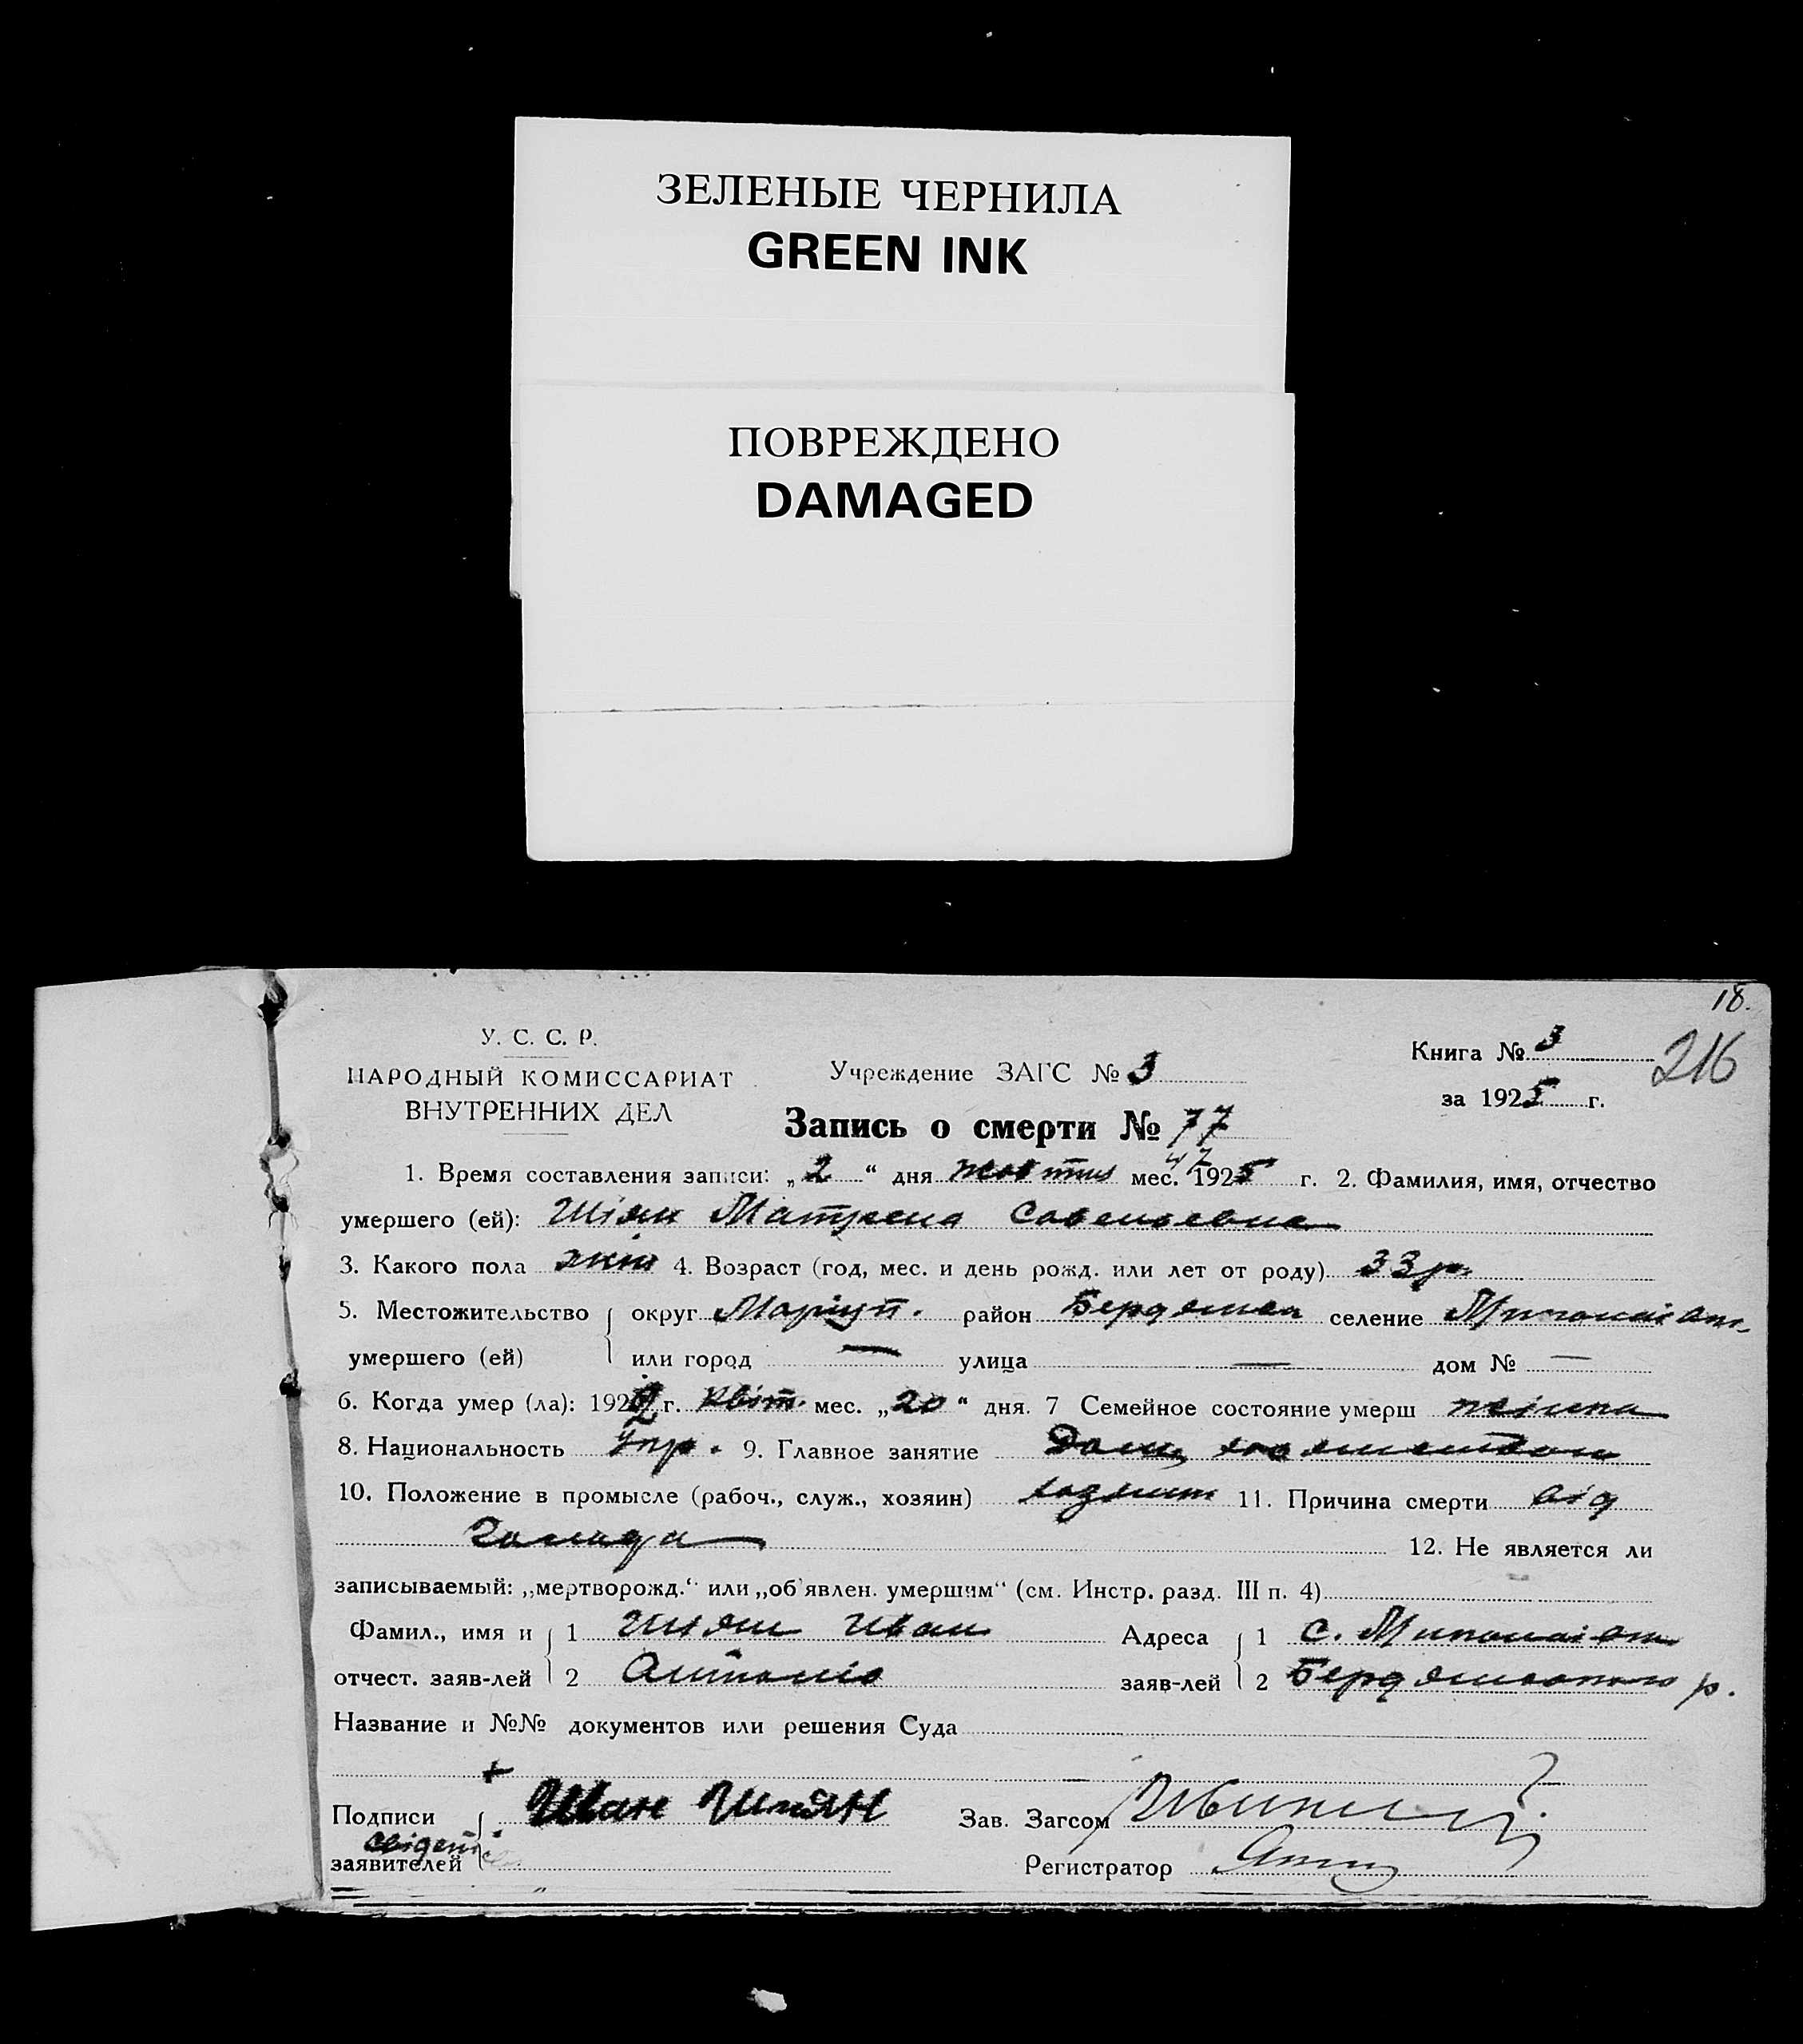 ЗЕЛЕНЫЕ ЧЕРНИЛА
GREEN INK
ПОВРЕЖДЕНО
DAMAGED
18.
216
У. С. С. Р.
НАРОДНЫЙ КОМИССАРИАТ
ВНУТРЕННИХ ДЕЛ
Учреждение ЗАГС № 3
Книга № 3
за 1925 г.
Запись о смерти № 77
1. Время составления записи: „2“ дня жовтня мес. 1925 г. 2. Фамилия, имя, отчество
умершего (ей): Шіян Матрена Савельевна
3. Какого пола жін 4. Возраст (год, мес. и день рожд. или лет от роду) 33 р.
5. Местожительство округ Маріуп. район Бердянск селение
умершего (ей) или город — улица — дом № —
6. Когда умер (ла): 192 г. квіт. мес. „20“ дня. 7 Семейное состояние умерш
8. Национальность Укр. 9. Главное занятие Дом.
10. Положение в промысле (рабоч., служ., хозяин) 11. Причина смерти від
голода
12. Не является ли
записываемый: „мертворожд.“ или „об'явлен. умершим“ (см. Инстр. разд. III п. 4)
Фамил., имя и 1 Шіян Иван Адреса 1 с.
отчест. заяв-лей 2 Антонів заяв-лей 2 Бердянского р.
Название и №№ документов или решения Суда
+
Подписи Иван Шиян Зав. Загсом
заявителей Регистратор